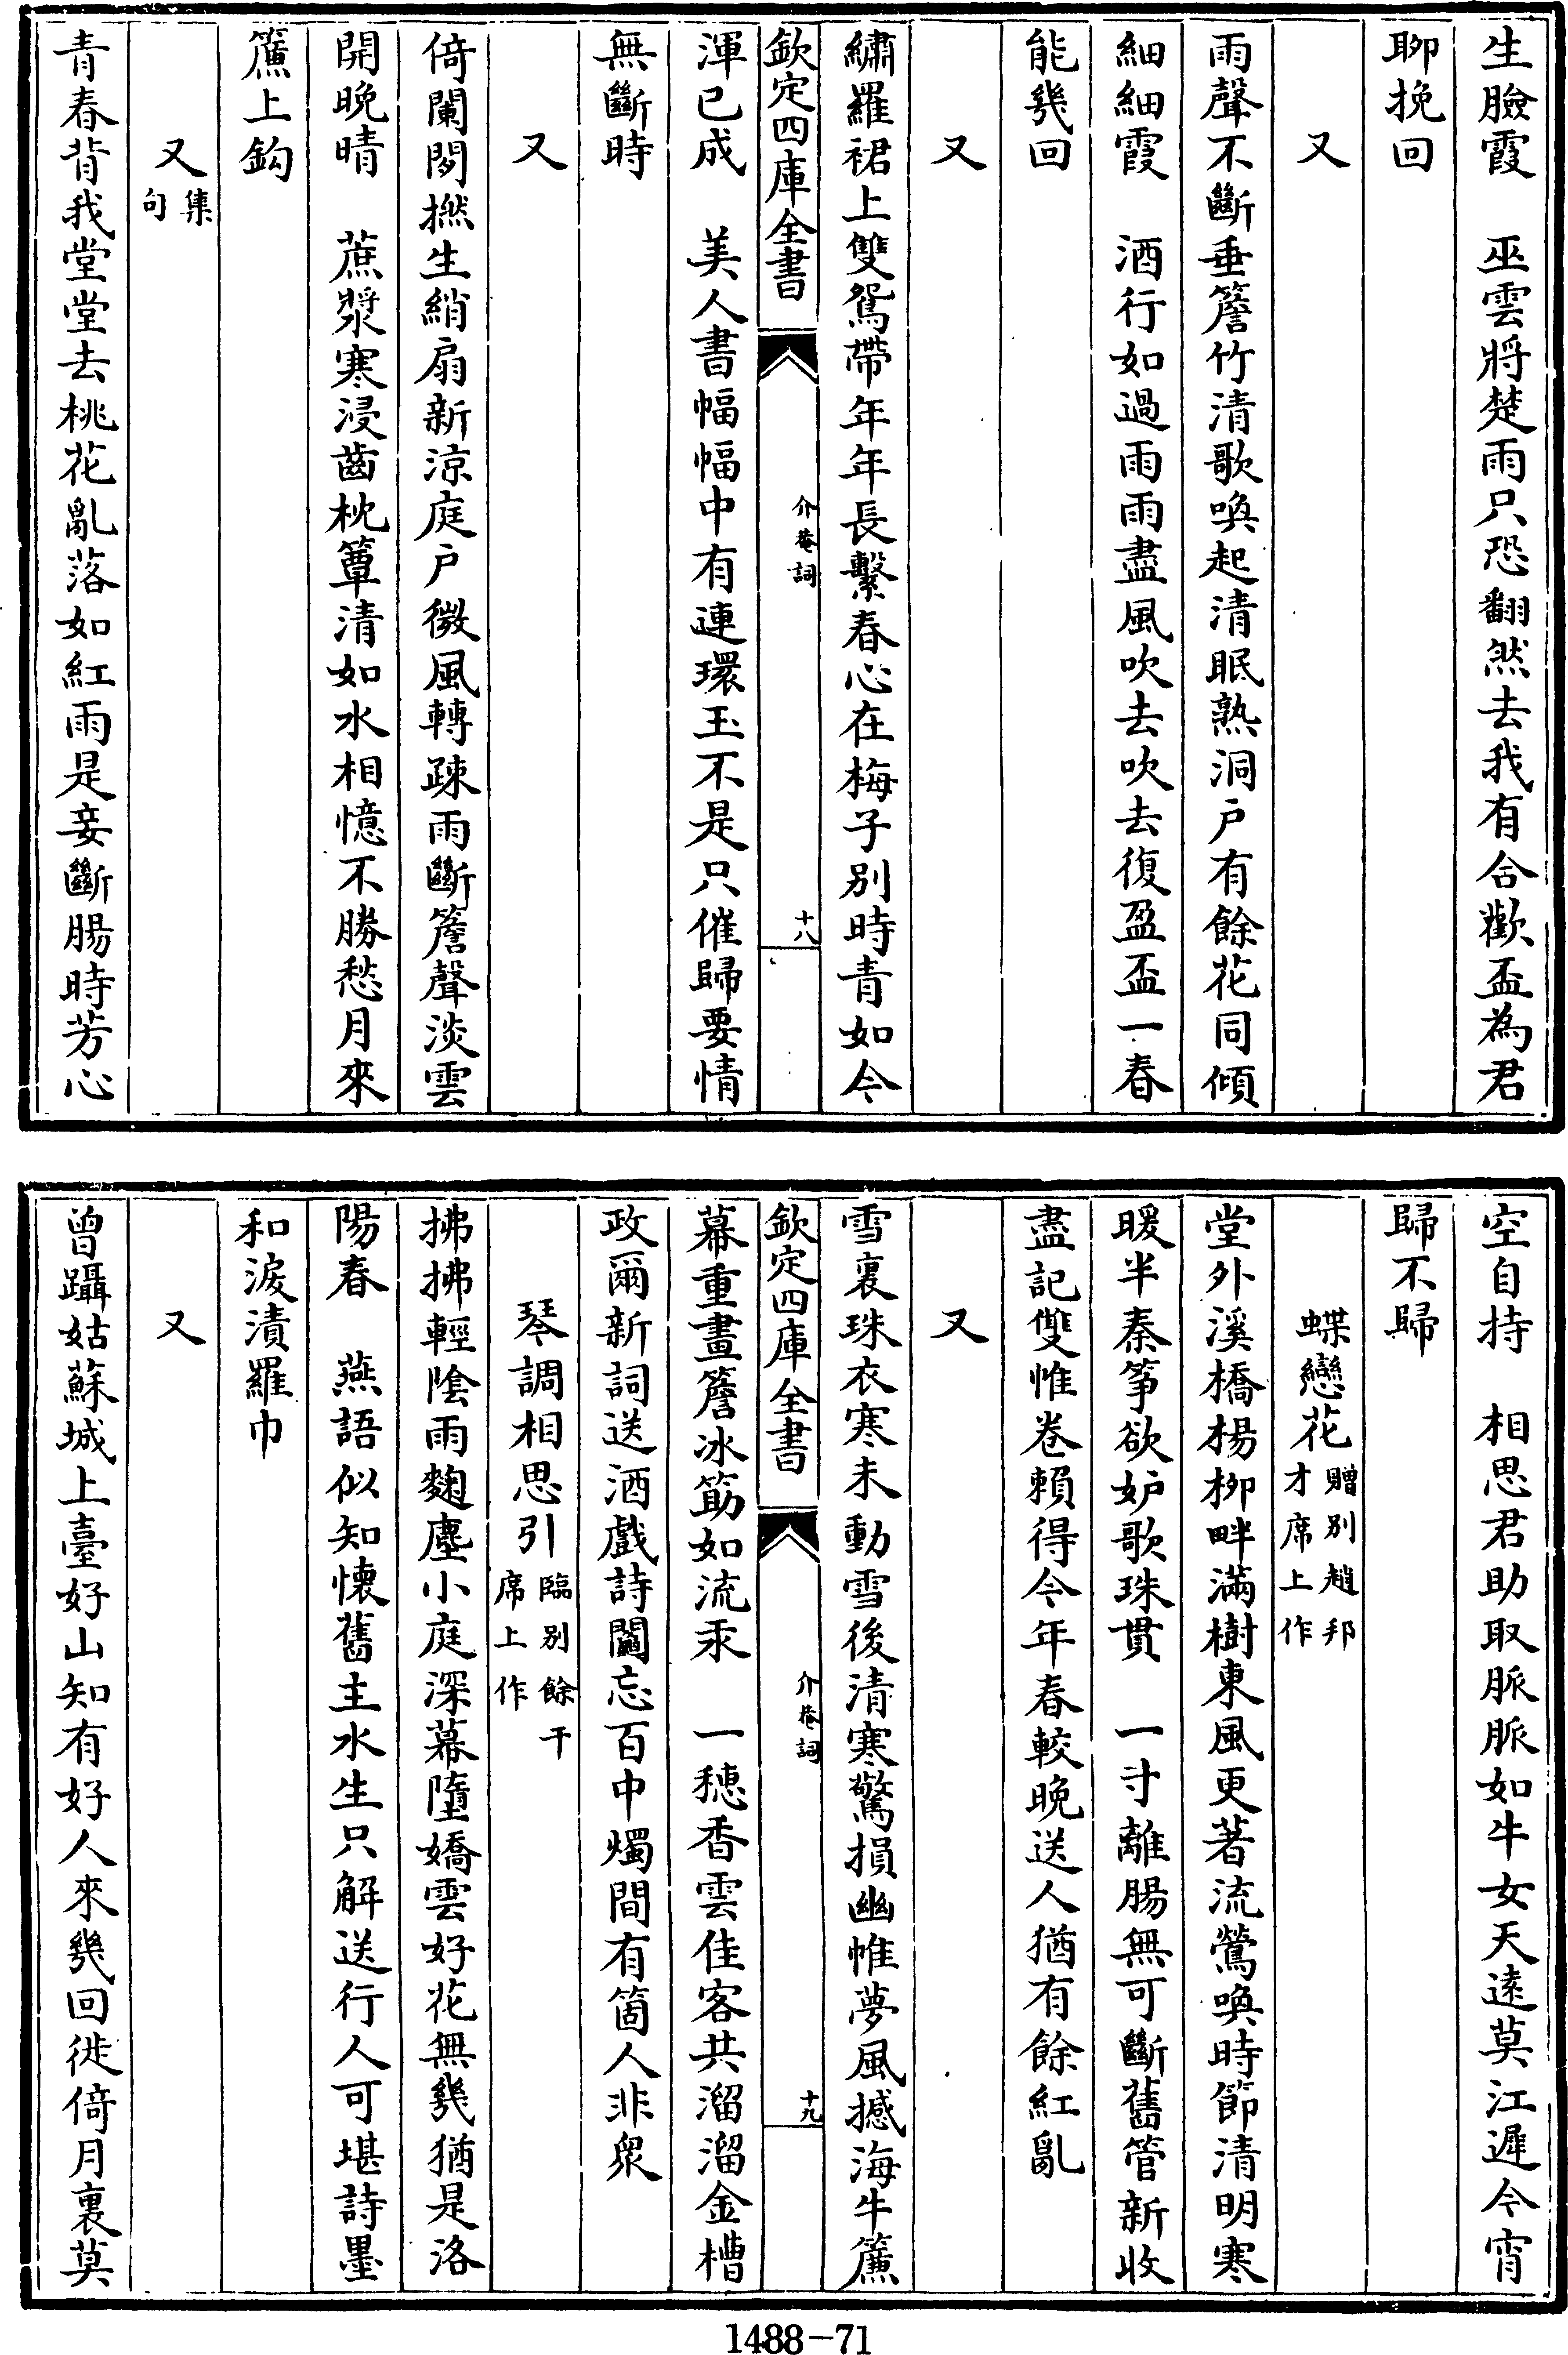 生臉霞　巫雲將楚雨只恐翻然去我有合歡盃為君
聊挽回
又
雨聲不斷垂簷竹清歌喚起清眠熟洞户有餘花同傾
細細霞　酒行如過雨雨盡風吹去吹去復盈盃一春
能幾回
又
繡羅裙上雙鴛帶年年長繫春心在梅子别時青如今
欽定四庫全書
介菴詞
十八
渾已成　美人書幅幅中有連環玉不是只催歸要情
無斷時
又
倚闌閣撚生綃扇新涼庭户微風轉疎雨斷簷聲淡雲
開晚晴　蔗漿寒浸齒枕簟清如水相憶不勝愁月來
簾上鈎
又集句
青春背我堂堂去桃花亂落如紅雨是妾斷腸時芳心
空自持　相思君助取脈脈如牛女天遠莫江遲今宵
歸不歸
蝶戀花贈别趙邦才席上作
堂外溪橋楊柳畔滿樹東風更著流鶯喚時節清明寒
暖半秦箏欲妒歌珠貫　一寸離腸無可斷舊管新收
盡記雙帷卷賴得今年春較晚送人猶有餘紅亂
又
雪裏珠衣寒未動雪後清寒驚損幽帷夢風撼海牛簾
欽定四庫全書
介菴詞
十九
幕重畫簷冰筯如流汞　一穗香雲佳客共溜溜金槽
政爾新詞送酒戲詩鬮忘百中燭間有箇人非衆
琴調相思引臨别餘干席上作
拂拂輕隂雨麴塵小庭深幕墮嬌雲好花無幾猶是洛
陽春　燕語似知懷舊主水生只解送行人可堪詩墨
和淚漬羅巾
又
曾躡姑蘇城上臺好山知有好人來幾回徙倚月裏莫
1488-71